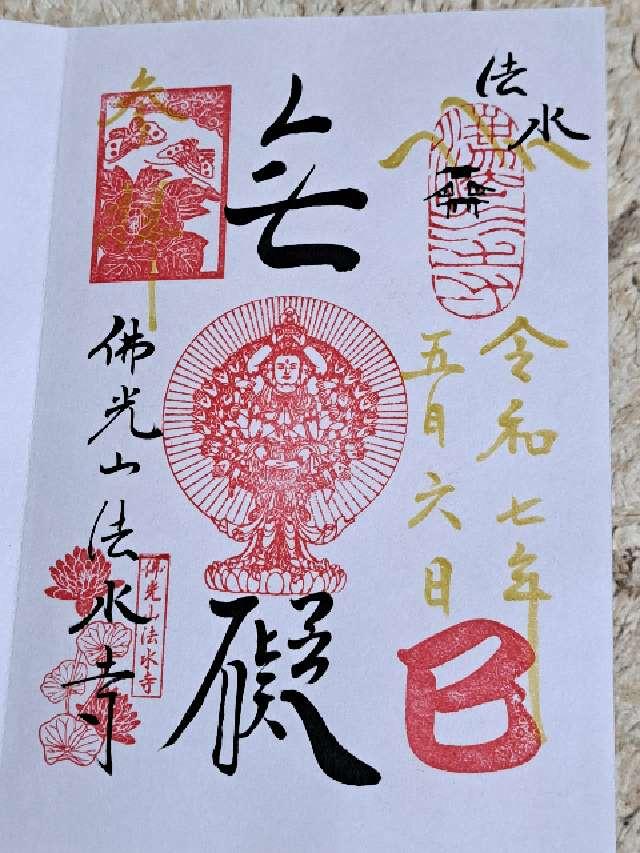 法水
令和七年
五月六日
巳
無
礙
佛光山法水寺
佛光山法水寺